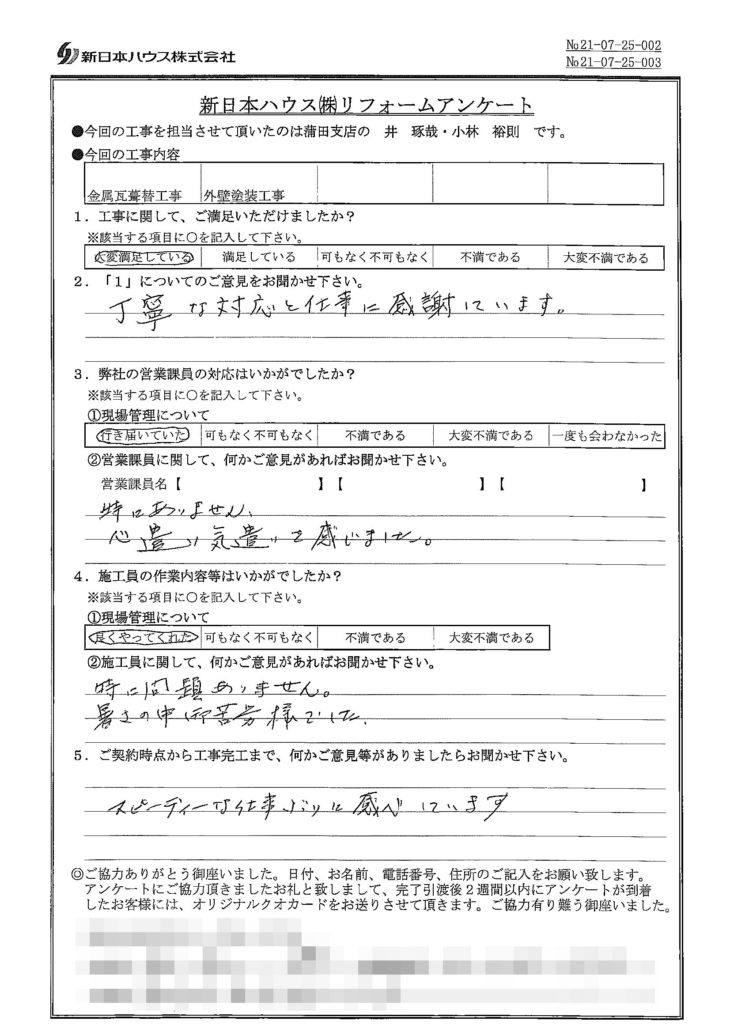 新日本ハウス株式会社
№21-07-25-002
№21-07-25-003
新日本ハウス㈱リフォームアンケート
●今回の工事を担当させて頂いたのは蒲田支店の 井 琢哉・小林 裕則 です。
●今回の工事内容
金属瓦葺替工事 外壁塗装工事
1．工事に関して、ご満足いただけましたか？
※該当する項目に○を記入して下さい。
大変満足している 満足している 可もなく不可もなく 不満である 大変不満である
2．「1」についてのご意見をお聞かせ下さい。
丁寧な対応と仕事に感謝しています。
3．弊社の営業課員の対応はいかがでしたか？
※該当する項目に○を記入して下さい。
①現場管理について
行き届いていた 可もなく不可もなく 不満である 大変不満である 一度も会わなかった
②営業課員に関して、何かご意見があればお聞かせ下さい。
営業課員名【 】【 】【 】
特にありません、
心遣い気遣いを感じました。
4．施工員の作業内容等はいかがでしたか？
※該当する項目に○を記入して下さい。
①現場管理について
良くやってくれた 可もなく不可もなく 不満である 大変不満である
②施工員に関して、何かご意見があればお聞かせ下さい。
特に問題ありません。
暑さの中御苦労様でした、
5．ご契約時点から工事完工まで、何かご意見等がありましたらお聞かせ下さい。
スピーディーな仕事ぶりに感心しています
◎ご協力ありがとう御座いました。日付、お名前、電話番号、住所のご記入をお願い致します。
アンケートにご協力頂きましたお礼と致しまして、完了引渡後2週間以内にアンケートが到着
したお客様には、オリジナルクオカードをお送りさせて頂きます。ご協力有り難う御座いました。